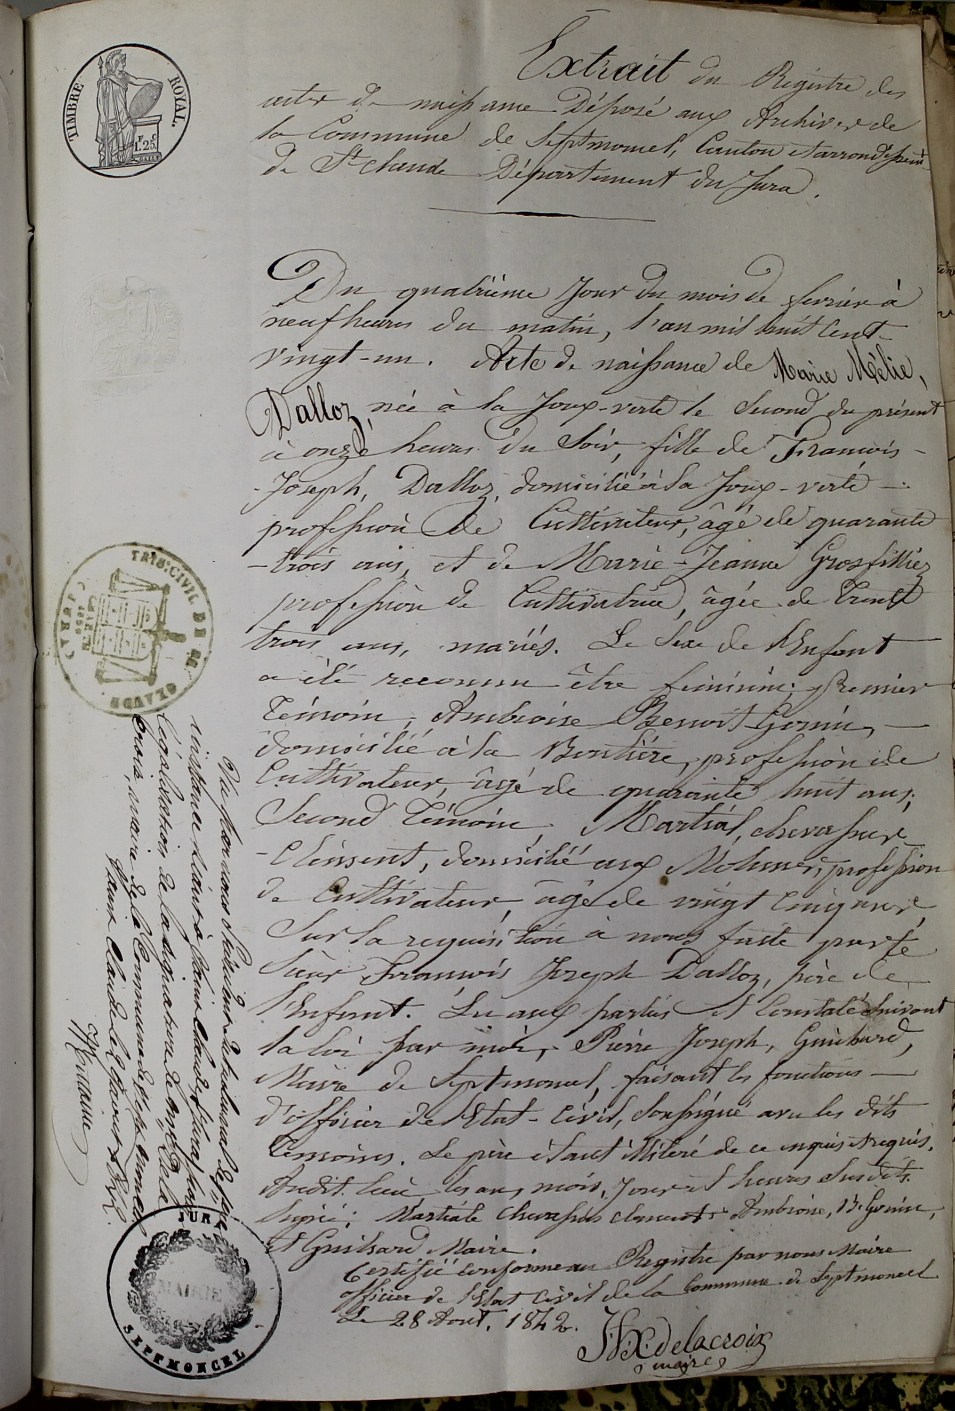 TIMBRE ROYAL.
1.25
Extrait du Régistre des
actes de naissance Déposé aux Archives de
la Commune de Septmoncel, Canton et arrondissemt
de St Claude Département du Jura.
Du quatrième Jour du mois de fevrier à
neuf heures du matin, l'an mil huit Cent
vingt-un. Acte de naissance de Marie Mélie,
Dalloz, née à la Joux-verte le Second du présent
à onze heures du Soir, fille de Francois-
-Joseph, Dalloz, domicilié à la Joux-verte-
profession de Cultivateur, âgé de quarante
-trois ans, et de Marie-Jeanne Grosfilliez
profession de Cultivatrice, âgée de Trente
trois ans, mariés. Le Sexe de l'Enfant
a été reconnu être feminin; premier
Témoin, Ambroise Benoit Gonin,
domicilié à la profession de
Cultivateur, âgé de quarante huit ans,
Second Témoin, Martial, chevassus
-Clément, domicilié aux profession
de Cultivateur, âgé de vingt
Sur la requisition à nous faite par le
Sieur François Joseph Dalloz, père de
l'Enfant. Lu aux parties et Constaté Suivant
la loi par moi, Pierre Joseph,
Maire de Septmoncel, faisant les fonctions
d'officier de l'Etat-Civil, Soussigné avec les dits
Témoins. Le père étant illitéré de ce enquis et requis.
Audit lieu, les an, mois, Jour et heures Susdits.
Signé: Martiale Chevassus clement, Ambroise, B. Gonin,
et Maire.
Certifié Conforme au Registre par nous Maire
officier de l'Etat Civil de la Commune de Septmoncel
Le 28 Aout, 1842.
Delacroix
maire
TRIB. CIVIL DE
JURA
Vu par nous
Légalisation de la signature de
maire de la Commune de Septmoncel
JURA
MAIRIE
SEPTMONCEL